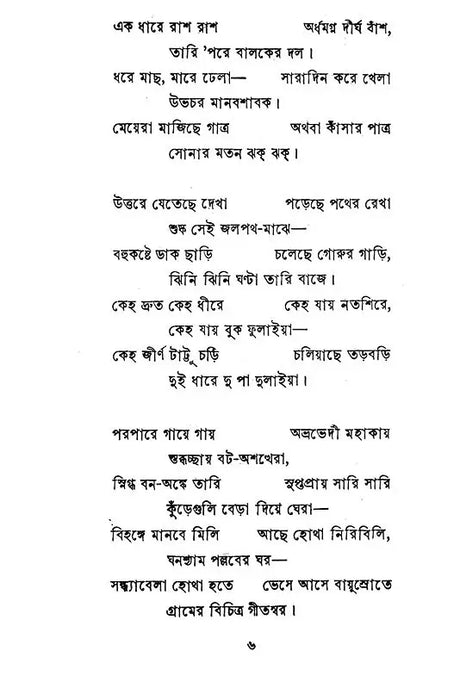 এক ধারে রাশ রাশ অর্ধমগ্ন দীর্ঘ বাঁশ,
তারি 'পরে বালকের দল।
ধরে মাছ, মারে ঢেলা— সারাদিন করে খেলা
উভচর মানবশাবক।
মেয়েরা মাজিছে গাত্র অথবা কাঁসার পাত্র
সোনার মতন ঝক্ ঝক্।
উত্তরে যেতেছে দেখা পড়েছে পথের রেখা
শুষ্ক সেই জলপথ-মাঝে—
বহুকষ্টে ডাক ছাড়ি চলেছে গোরুর গাড়ি,
ঝিনি ঝিনি ঘণ্টা তারি বাজে।
কেহ দ্রুত কেহ ধীরে কেহ যায় নতশিরে,
কেহ যায় বুক ফুলাইয়া—
কেহ জীর্ণ টাট্টু চড়ি চলিয়াছে তড়বড়ি
দুই ধারে দু পা দুলাইয়া।
পরপারে গায়ে গায় অভ্রভেদী মহাকায়
স্তব্ধচ্ছায় বট-অশথেরা,
স্নিগ্ধ বন-অঙ্কে তারি সুপ্তপ্রায় সারি সারি
কুঁড়েগুলি বেড়া দিয়ে ঘেরা—
বিহঙ্গে মানবে মিলি আছে হোথা নিরিবিলি,
ঘনশ্যাম পল্লবের ঘর—
সন্ধ্যাবেলা হোথা হতে ভেসে আসে বায়ুস্রোতে
গ্রামের বিচিত্র গীতস্বর।
৬